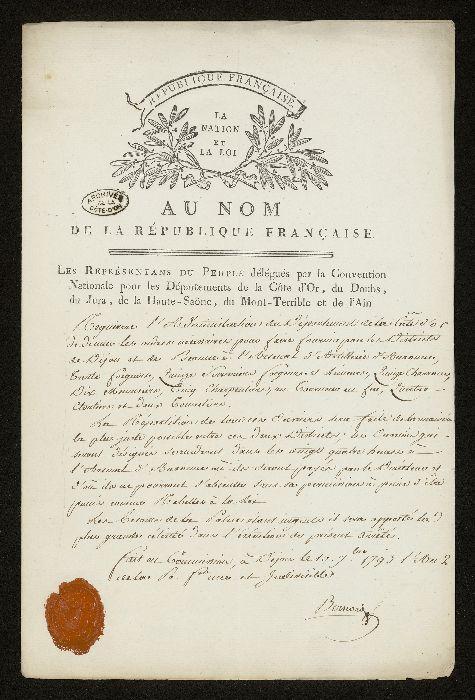 RÉPUBLIQUE FRANÇAISE
LA
NATION
ET
LA LOI
ARCHIVES
DE LA
CÔTE-D'OR
AU NOM
DE LA RÉPUBLIQUE FRANÇAISE.
LES REPRÉSENTANS DU PEUPLE délégués par la Convention
Nationale pour les Départemens de la Côte d'Or, du Doubs,
du Jura, de la Haute-Saône, du Mont-Terrible et de l'Ain
Requierent l'Administration du Département de la Côte d'Or
de donner les ordres nécessaires pour faire fournir par les Districts
de Dijon et de à l'Arsenal d'Artillerie d'Auxonne,
Trente forgeurs, Serruriers forgeurs et limeurs,
Dix Menuisiers, Cinq Charpentiers, un Tourneur en fer, quatre
et deux Tonneliers.
La Répartition de tous ces Ouvriers sera faite de la maniere
la plus juste possible entre ces deux Districts; les Ouvriers qui
seront désignés se rendront dans les vingt quatre heures à
l'Arsenal d'Auxonne où ils seront payés par le Directeur et
d'où ils ne pourront s'absenter sans sa permission à peine d'être
punis comme Rebelles à la Loi.
Les de la Patrie étant urgents il sera apporté la
plus grande célérité dans l'exécution du présent Arrêté.
Fait en Commission, à Dijon le 10 7bre 1793 l'An 2
de la Rep. française et indivisible
Bernard